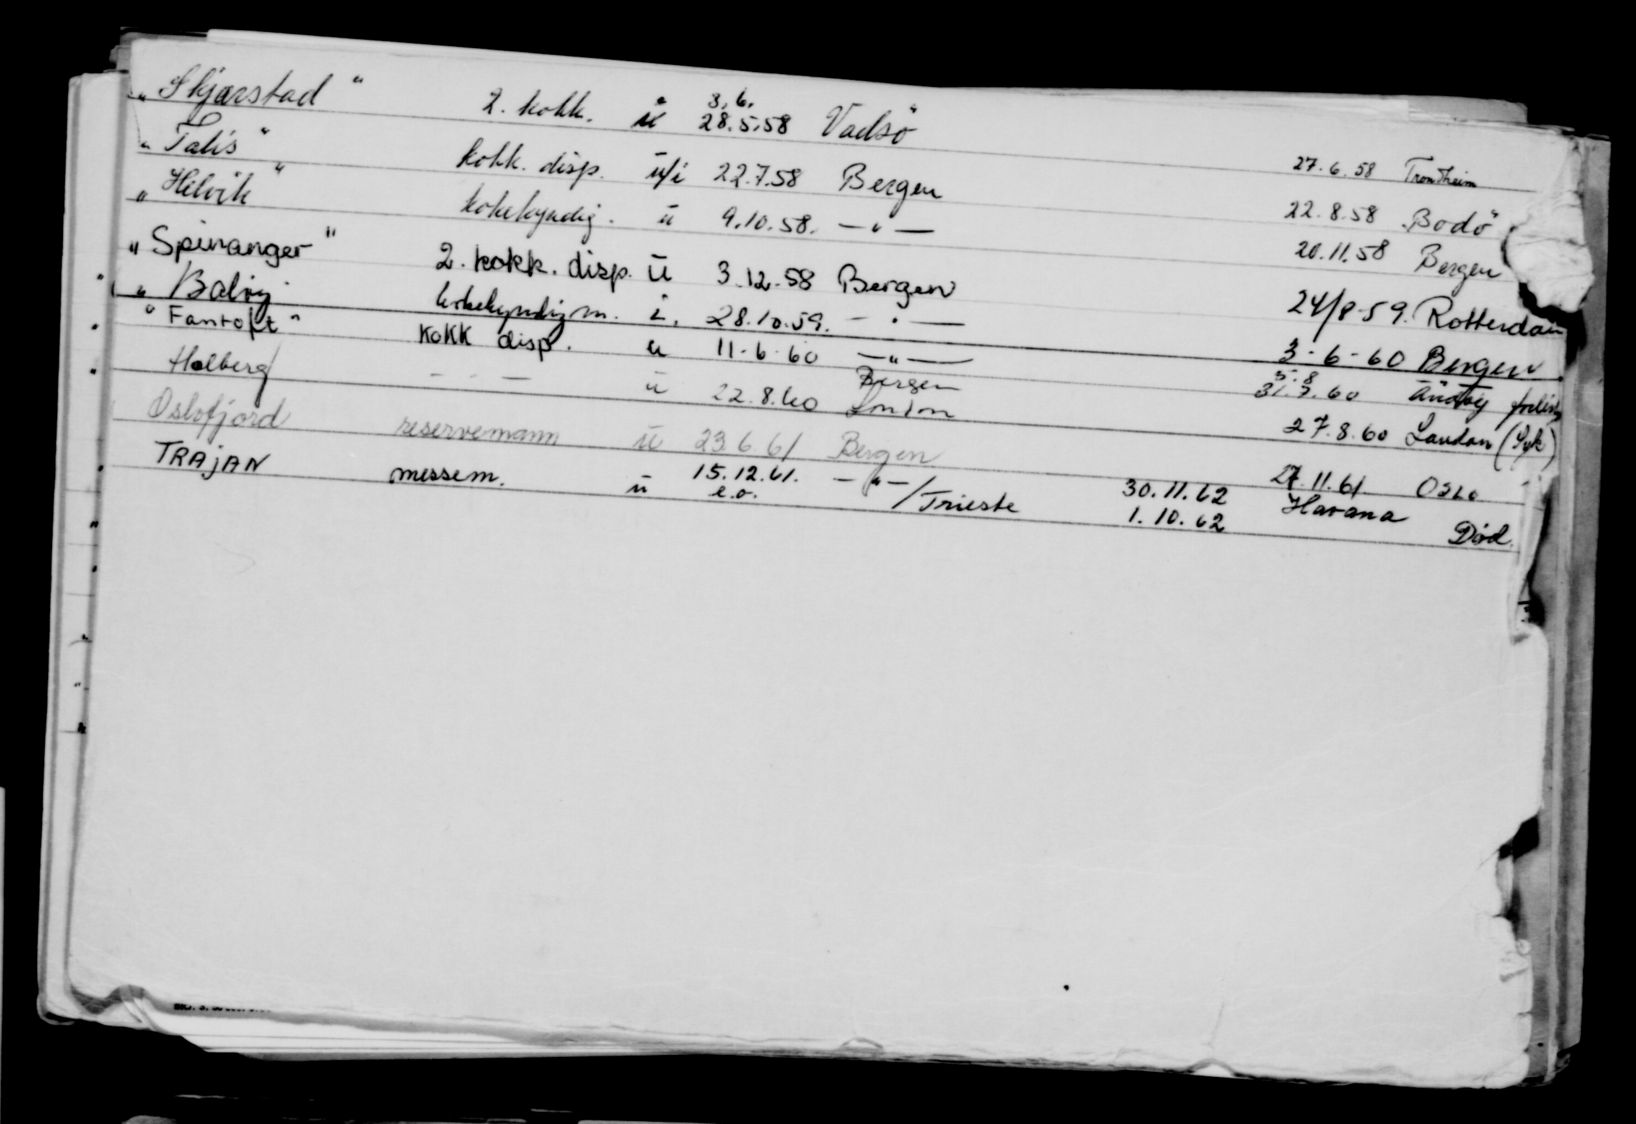 "Skjærstad" 2. kokk. u 3.6. 28.5.58 Vadsö 27.6.58 Trondheim
"Talis" kokk. disp. u/i 22.7.58 Bergen 22.8.58 Bodö
"Helvik" kokekyndig. u 9.10.58. — " — 20.11.58 Bergen
"Spinanger" 2. kokk. disp. u 3.12.58 Bergen 24/8-59. Rotterdam
" Balzy kokekyndig m. i. 28.10.59. — " — 3-6-60 Bergen
"Fantoft" KOKK disp. u 11-6-60 — " — 5.8 31.7.60 forlist
Holberg — — — u 22.8.60 Bergen London 27.8.60 London (Syk)
Oslofjord reservemann u 23.6.61 Bergen 27.11.61 OSLO
TRAJAN messem. u 15.12.61. — " — /Trieste 30.11.62 Havana
e.o. 1.10.62 Død.